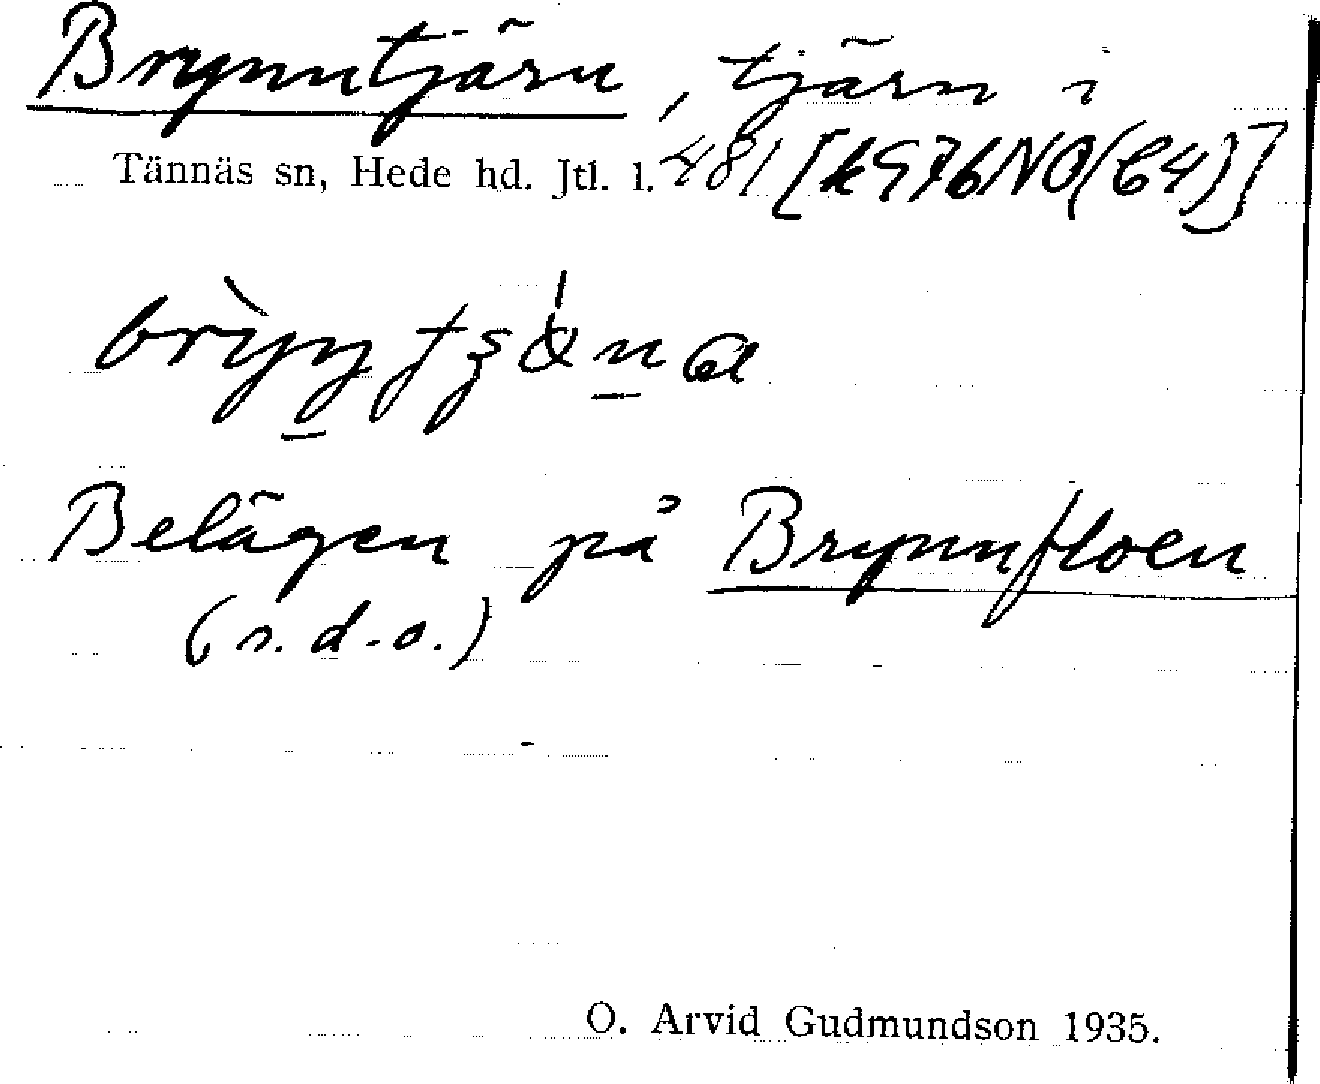 Brynntjärn, tjärn i
Tännäs sn, Hede hd. Jtl. l. 481 [k976NO(C4)]
Belägen på Brynnfloen
(s.d.o.)
O. Arvid Gudmundson 1935.